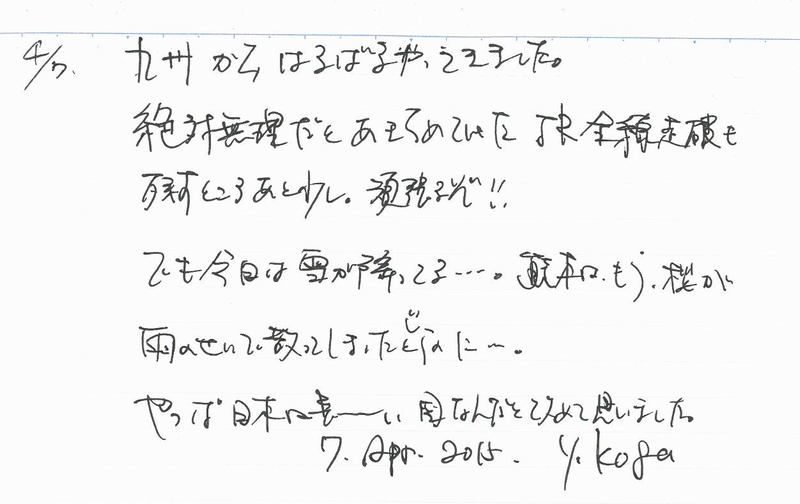 4/7. 九州からはるばるやってきました。
絶対無理だとあきらめていた JR全線走破も
残すところあと少し。頑張るぞ!!
でも今日は雪が降ってる…。もう、桜が
雨のせいで散ってしまった
やっぱ日本は長ーい国なんだと改めて思いました。
7. Apr. 2015. Y. Koga